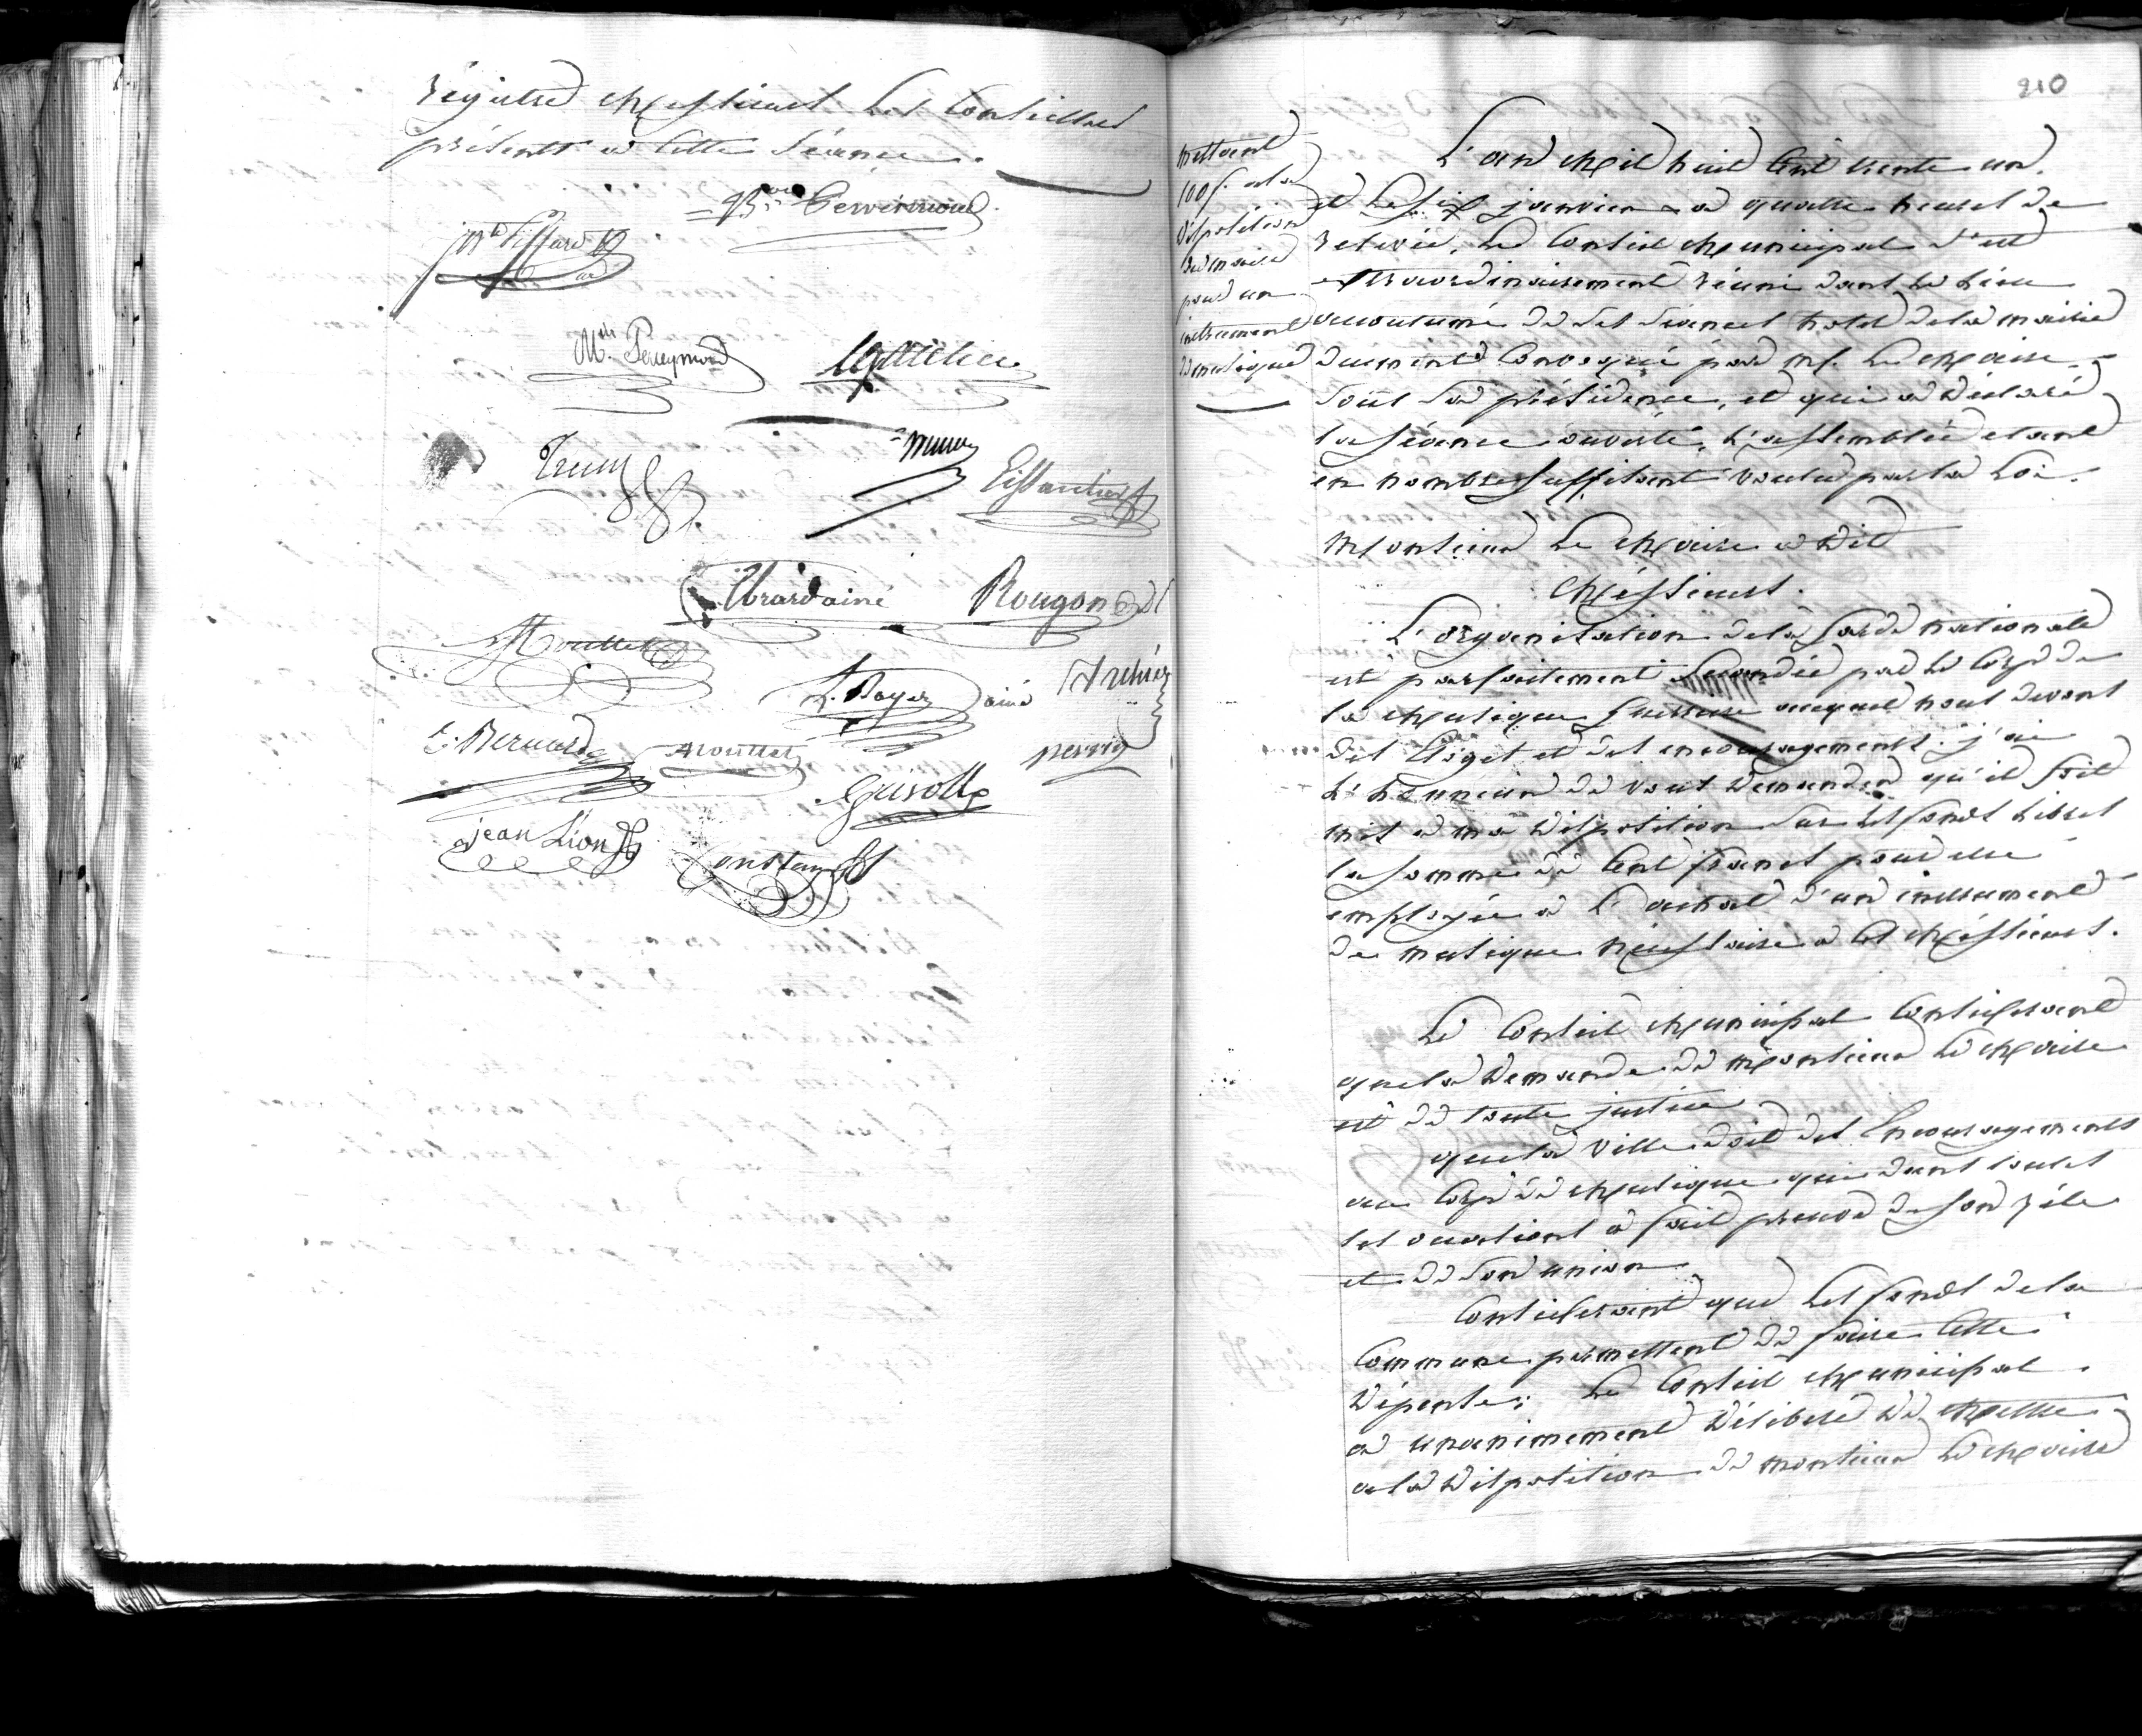 régistre Messieurs Les Conseillers
présents a cette séance.
M. Perreymond
Trucy
Mure
Eissautier
Sivard ainé
Rougon
Moullet
L. Boyer ainé
Authier
E. Bernard
Mouttet
Perrin
Guisolle
jean Lion
Constans
210
mettant
100 f. a la
disposition
du maire
pour un
instrument
de musique
L'an Mil huit Cent trente un
et le six janvier a quatre heures de
relevée, Le Conseil Municipal s'est
extraordinairement réuni dans le Lieu
accoutumé de ses séances hotel de la mairie
duement Convoqué par Mr. Le Maire
sous sa présidence, et qui a déclaré
la séance ouverte, L'assemblée etant
en nombre suffisant voulu par la Loi.
Monsieur Le Maire a dit
Messieurs.
L'organisation de la Garde nationale
est parfaitement secondée par le Corps de
la Musique guerriere auquel nous devons
des Eloges et des encouragements. j'ai
L'honneur de vous demander qu'il soit
mis a ma disposition sur les fonds Libres
la somme de Cent francs pour etre
employée a L'achat d'un instrument
de musique nécessaire a Ces Messieurs.
Le Conseil Municipal Considerant
que la demande de Monsieur Le Maire
est de toute justice
que la ville doit des Encouragements
au Corps de Musique qui dans toutes
les occasions a fait preuve de son zéle
et de son union
Considerant que les fonds de la
Commune permettent de faire Cette
dépense; Le Conseil Municipal
a unanimement déliberé de Mettre
a la disposition de monsieur Le Maire